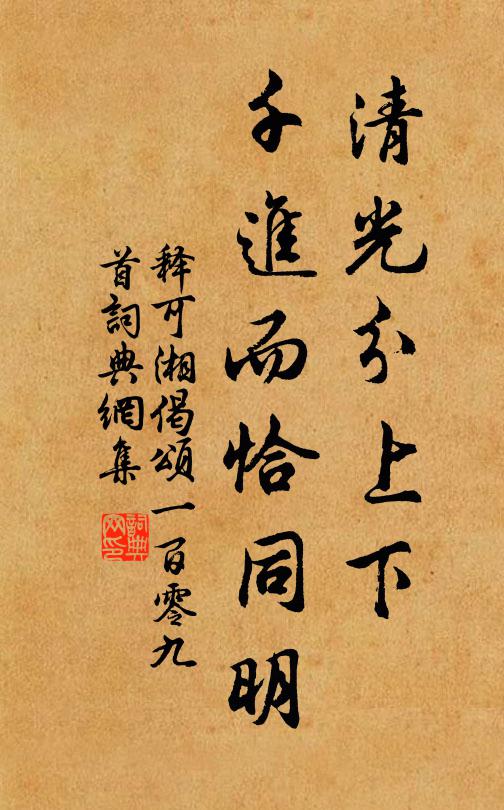 清光分上下
千進而恰同明
释可湘偈頌一百零九
首詞典網集
詞典
网印